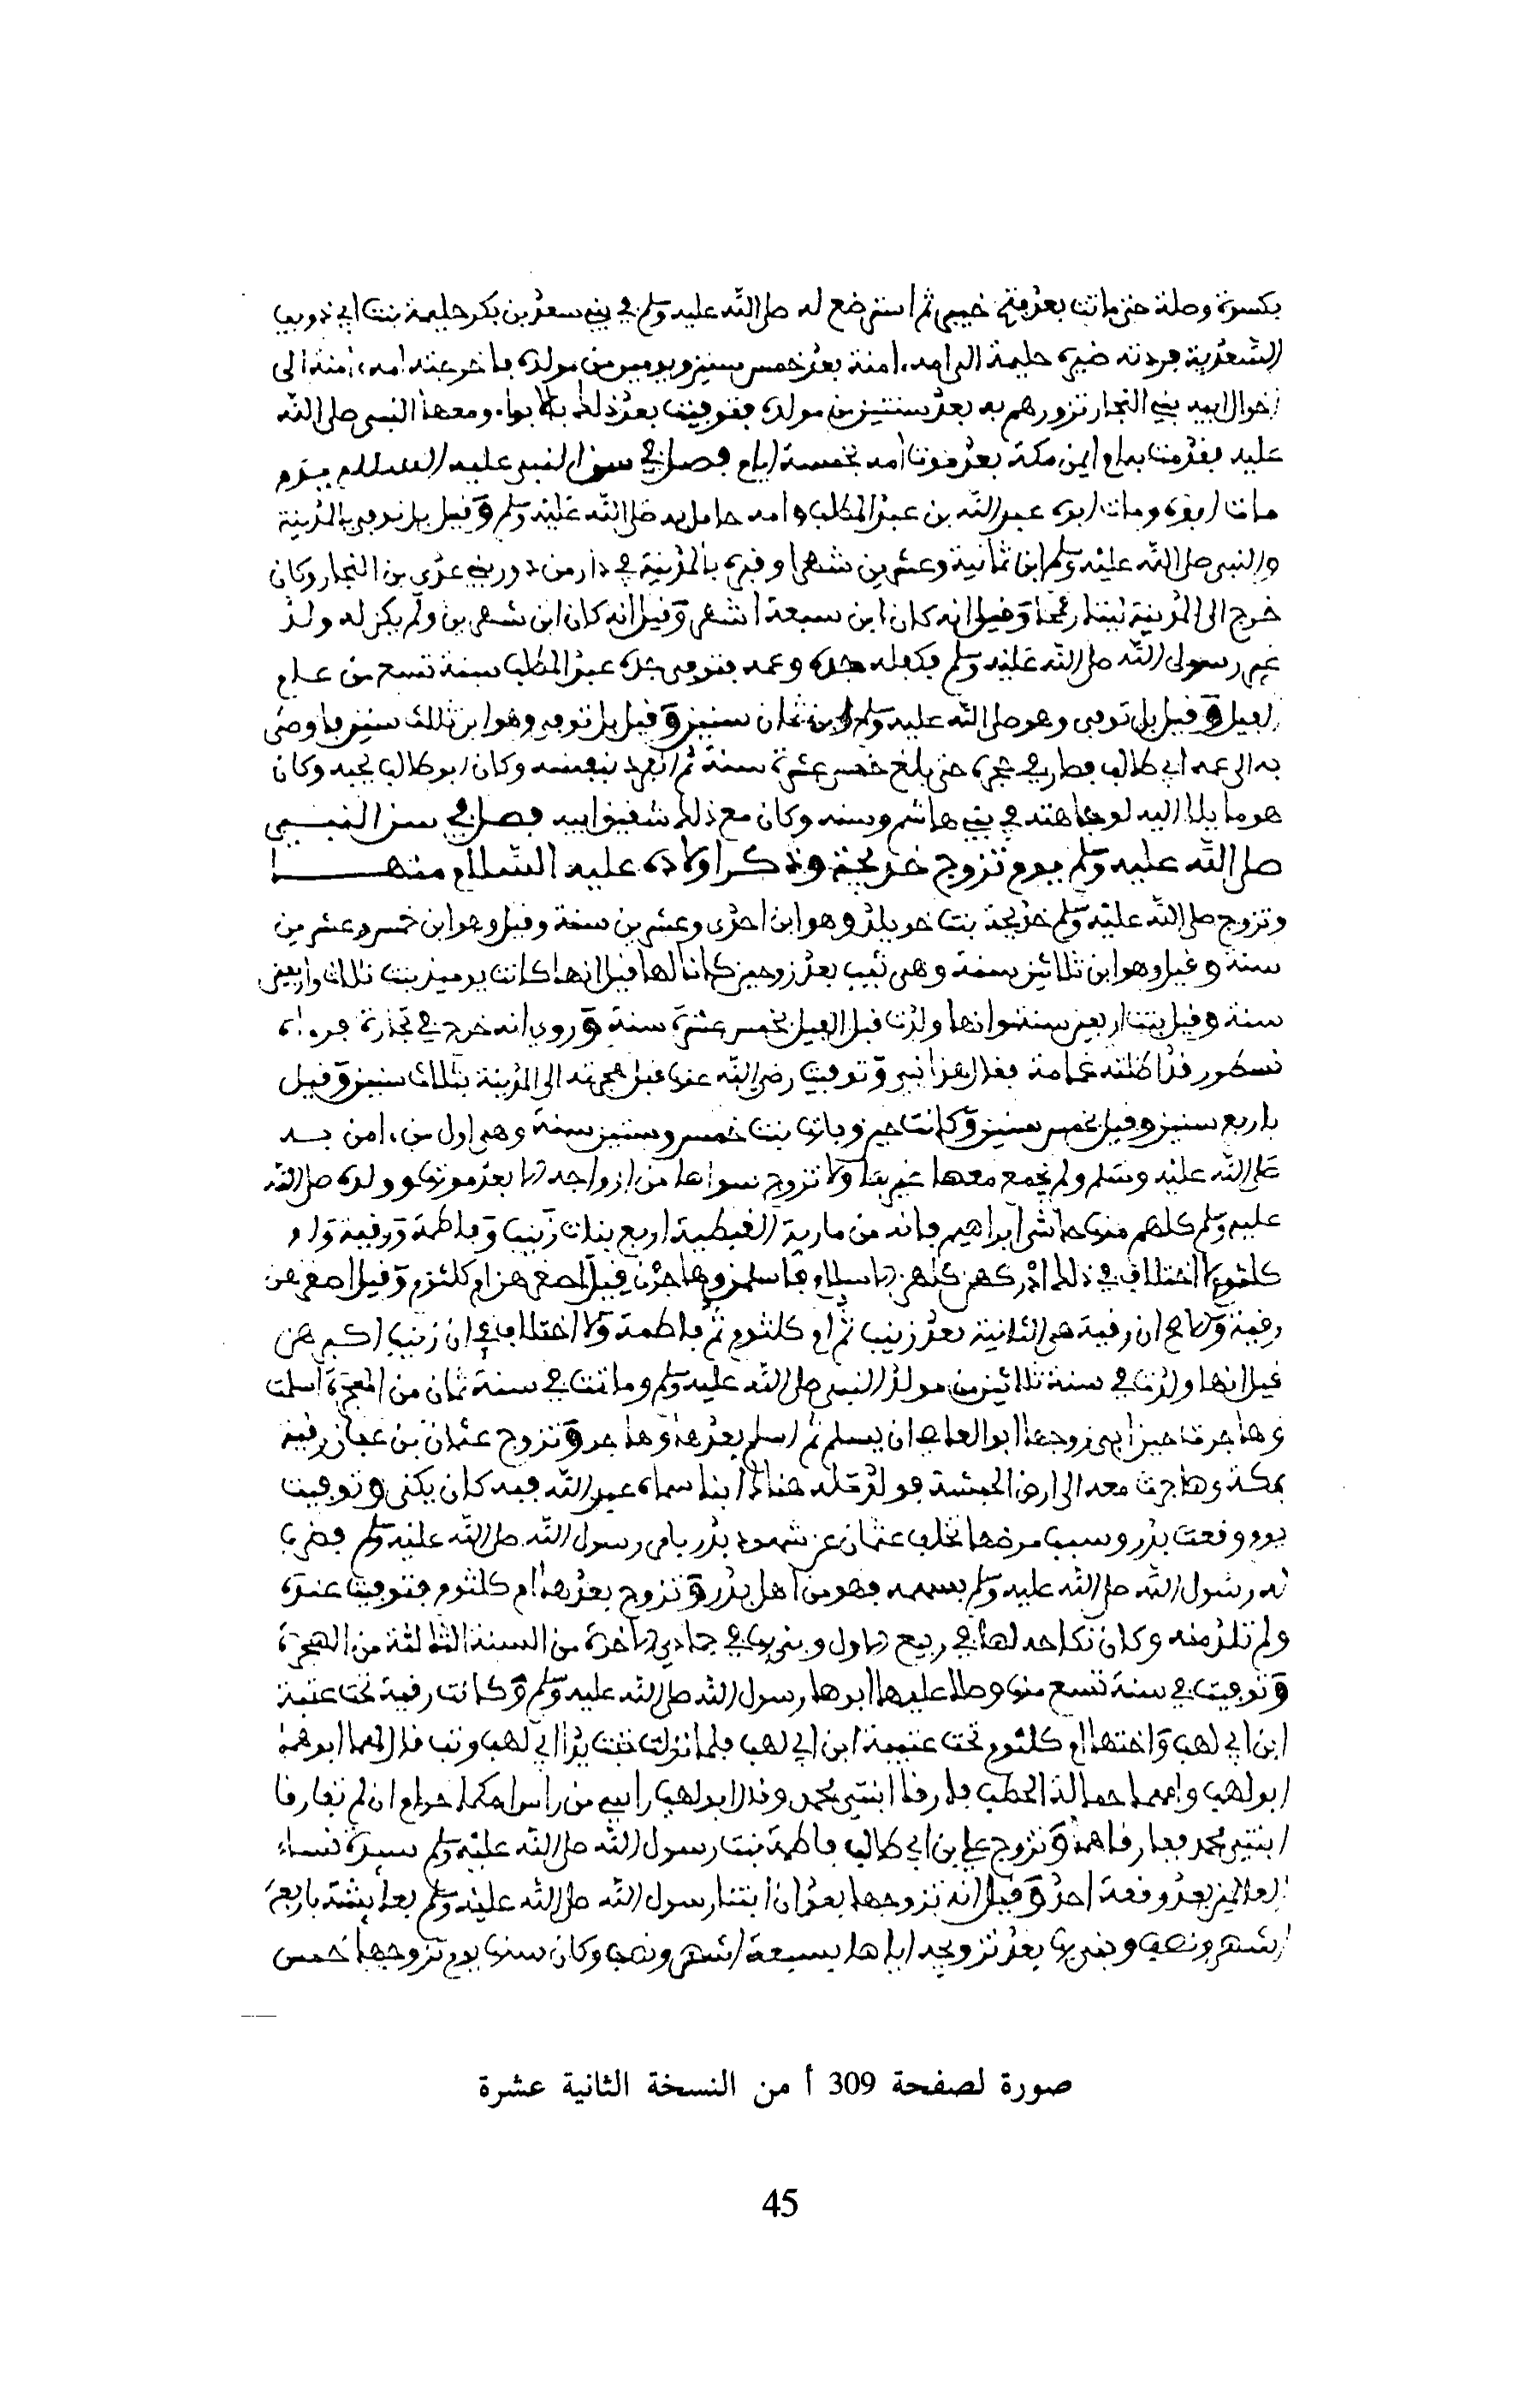 بكسوة وصلة حتى ماتت بعد فتح خيبر ثم استرضع له صلى الله عليه وسلم في بني سعد بن بكر حليمة بنت ابي ذويب
السعدية فردته ضيره حليمة الى امه امنة بعد خمس سنين ويومين من مولده فاخرجته امه امنة الى
اخوال ابيه بني النجار تزورهم به بعد سنتين من مولده فتوفيت بعد ذلك بالابواء ومعها النبي صلى الله
عليه فقدمت به ام ايمن مكة بعد موت امه بخمسة ايام فصل في سن النبي عليه السلام يوم
مات ابوه ومات ابوه عبد الله بن عبد المطلب وامه حامل به صلى الله عليه وسلم وقيل بل توفي بالمدينة
والنبي صلى الله عليه وسلم ابن ثمانية وعشرين شهرا وقبره بالمدينة في دار من دور بني عدي بن النجار وكان
خرج الى المدينة يمتار تمرا وقيل انه كان ابن سبعة اشهر وقيل انه كان ابن شهرين ولم يكن له ولد
غير رسول الله صلى الله عليه وسلم فكفله جده وعمه فتوفي جده عبد المطلب سنة تسع من عام
الفيل وقيل بل توفي وهو صلى الله عليه وسلم ابن ثمان سنين وقيل بل توفي وهو ابن ثلاث سنين فاوصى
به الى عمه ابي طالب فصار في حجره حتى بلغ خمس عشرة سنة ثم انفرد بنفسه وكان ابو طالب يحبه وكان
هو مايلا اليه لوجاهته في بني هاشم وسنه وكان مع ذلك شقيق ابيه فصل في سن النبي
صلى الله عليه وسلم يوم تزوج خديجة وذكر اولاده عليه السلام منها
وتزوج صلى الله عليه وسلم خديجة بنت خويلد وهو ابن احدى وعشرين سنة وقيل وهو ابن خمس وعشرين
سنة وقيل وهو ابن ثلاثين سنة وهي ثيب بعد زوجين كانا لها قيل انها كانت يوميذ بنت ثلاث واربعين
سنة وقيل بنت اربعين سنة وانها ولدت قبل الفيل بخمس عشرة سنة وروي انه خرج في تجارة فرءاه
نسطور قد اظلته غمامة فقال هذا نبي وتوفيت رضي الله عنها قبل هجرته الى المدينة بثلاث سنين وقيل
باربع سنين وقيل بخمس سنين وكانت حين وفاتها بنت خمس وستين سنة وهي اول من ءامن به
صلى الله عليه وسلم ولم يجمع معها غيرها ولا تزوج سواها من ازواجه الا بعد موتها وولده صلى الله
عليه وسلم كلهم منها حاشى ابراهيم فانه من مارية القبطية اربع بنات زينب وفاطمة ورقية وام
كلثوم لا اختلاف في ذلك ادركهن كلهن الاسلام فاسلمن وهاجرن قيل اصغرهن ام كلثوم وقيل اصغرهن
رقية والاصح ان رقية هي الثانية بعد زينب ثم ام كلثوم ثم فاطمة ولا اختلاف في ان زينب اكبرهن
قيل انها ولدت في سنة ثلاثين من مولد النبي صلى الله عليه وسلم وماتت في سنة ثمان من الهجرة اسلمت
وهاجرت حين ابى زوجها ابو العاصي ان يسلم ثم اسلم بعدها وهاجر وتزوج عثمان بن عفان رقية
بمكة وهاجرت معه الى ارض الحبشة فولدت له هناك ابنا سماه عبد الله فبه كان يكنى وتوفيت
يوم وقعت بدر وسبب مرضها تخلف عثمان عن شهود بدر بامر رسول الله صلى الله عليه وسلم فضرب
له رسول الله صلى الله عليه وسلم بسهمه فهو من اهل بدر وتزوج بعدها ام كلثوم فتوفيت عنده
ولم تلد منه وكان نكاحه لها في ربيع الاول وبنى بها في جمادى الاخرة من السنة الثالثة من الهجرة
وتوفيت في سنة تسع منها وصلى عليها ابوها رسول الله صلى الله عليه وسلم وكانت رقية تحت عتبة
ابن ابي لهب واختها ام كلثوم تحت عتيبة ابن ابي لهب فلما نزلت تبت يدا ابي لهب وتب قال لهما ابوهما
ابو لهب وامهما حمالة الحطب فارقا ابنتي محمد وقال ابو لهب راسي من راسيكما حرام ان لم تفارقا
ابنتي محمد ففارقاهما وتزوج علي بن ابي طالب فاطمة بنت رسول الله صلى الله عليه وسلم سيدة نساء
العالمين بعد وقعة احد وقيل انه تزوجها بعد ان ابتنا رسول الله صلى الله عليه وسلم بعايشة باربعة
اشهر ونصف وبنى بها بعد تزويجه اياها بسبعة اشهر ونصف وكان سنها يوم تزوجها خمس
صورة لصفحة 309 أ من النسخة الثانية عشرة
45